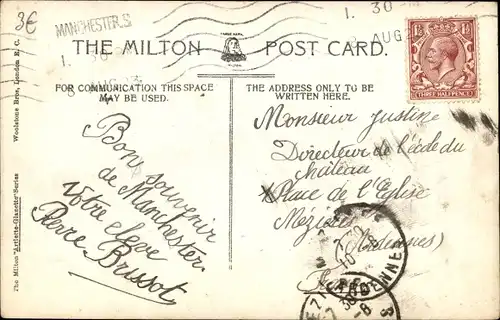 3€
MANCHESTER.S.
1. 30
1. 30
AUG
8 AUG
THE MILTON POST CARD.
THREE HALFPENCE
FOR COMMUNICATION THIS SPACE
MAY BE USED.
THE ADDRESS ONLY TO BE
WRITTEN HERE.
Bon souvenir
de Manchester
Votre élève
Pierre Brissot
Monsieur Justine
Directeur de l'école du
château
Place de l'Eglise
Mezières
(Ardennes)
ARDENNES
The Milton "Artlette-Glazette" Series
Woolstone Bros., London E.C.